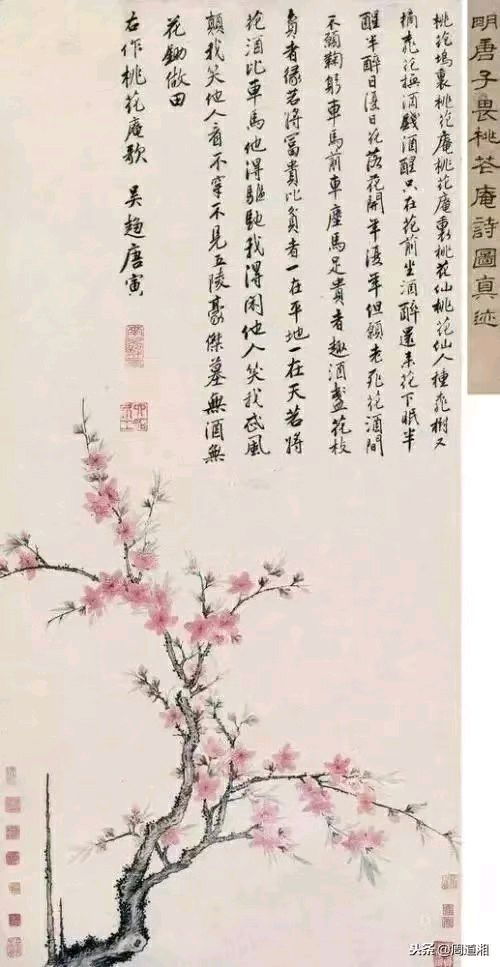 明唐子畏桃花庵詩圖真迹
桃花塢裏桃花庵桃花庵裏桃花仙桃花仙人種桃樹又
摘桃花換酒錢酒醒只在花前坐酒醉還来花下眠半
醒半醉日復日花落花開年復年但願老死花酒間
不願鞠躬車馬前車塵馬足貴者趣酒盞花枝
貧者緣若將富貴比貧者一在平地一在天若將
花酒比車馬他得驅馳我得閑他人笑我忒風
顛我笑他人看不穿不見五陵豪傑墓無酒無
花鋤做田
右作桃花庵歌 吳趨唐寅
头条@周道湘